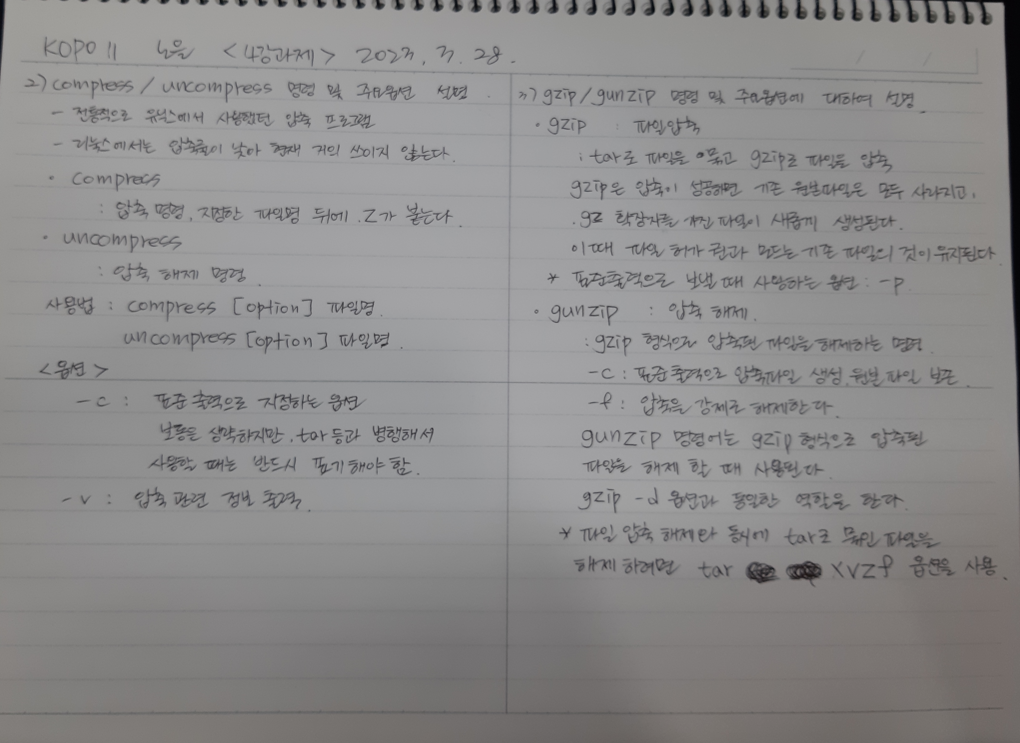 KOPO 11 노을 <4강과제> 2023. 3. 28.
2) compress / uncompress 명령 및 주요옵션 설명.
- 전통적으로 유닉스에서 사용했던 압축 프로그램
- 리눅스에서는 압축률이 낮아 현재 거의 쓰이지 않는다.
• compress
: 압축 명령, 지정한 파일명 뒤에 .Z가 붙는다
• uncompress
: 압축 해제 명령
사용법 : compress [option] 파일명.
uncompress [option] 파일명.
<옵션>
-c : 표준 출력으로 지정하는 옵션
보통은 생략하지만, tar 등과 병행해서
사용할 때는 반드시 표기해야 함.
-v : 압축 관련 정보 출력.
3) gzip / gunzip 명령 및 주요옵션에 대하여 설명.
• gzip : 파일압축
: tar로 파일을 묶고 gzip로 파일을 압축
gzip은 압축이 성공하면 기존 원본파일은 모두 사라지고,
.gz 확장자를 가진 파일이 새롭게 생성된다.
이때 파일 허가권과 모드는 기존 파일의 것이 유지된다.
* 표준출력으로 보낼 때 사용하는 옵션 : -p
• gunzip : 압축 해제.
: gzip 형식으로 압축된 파일을 해제하는 명령.
-c : 표준 출력으로 압축파일 생성, 원본 파일 보존.
-f : 압축을 강제로 해제한다.
gunzip 명령어는 gzip 형식으로 압축된
파일을 해제 할 때 사용된다
gzip -d 옵션과 동일한 역할을 한다.
* 파일 압축 해제와 동시에 tar로 묶인 파일을
해제 하려면 tar xvzf 옵션을 사용.